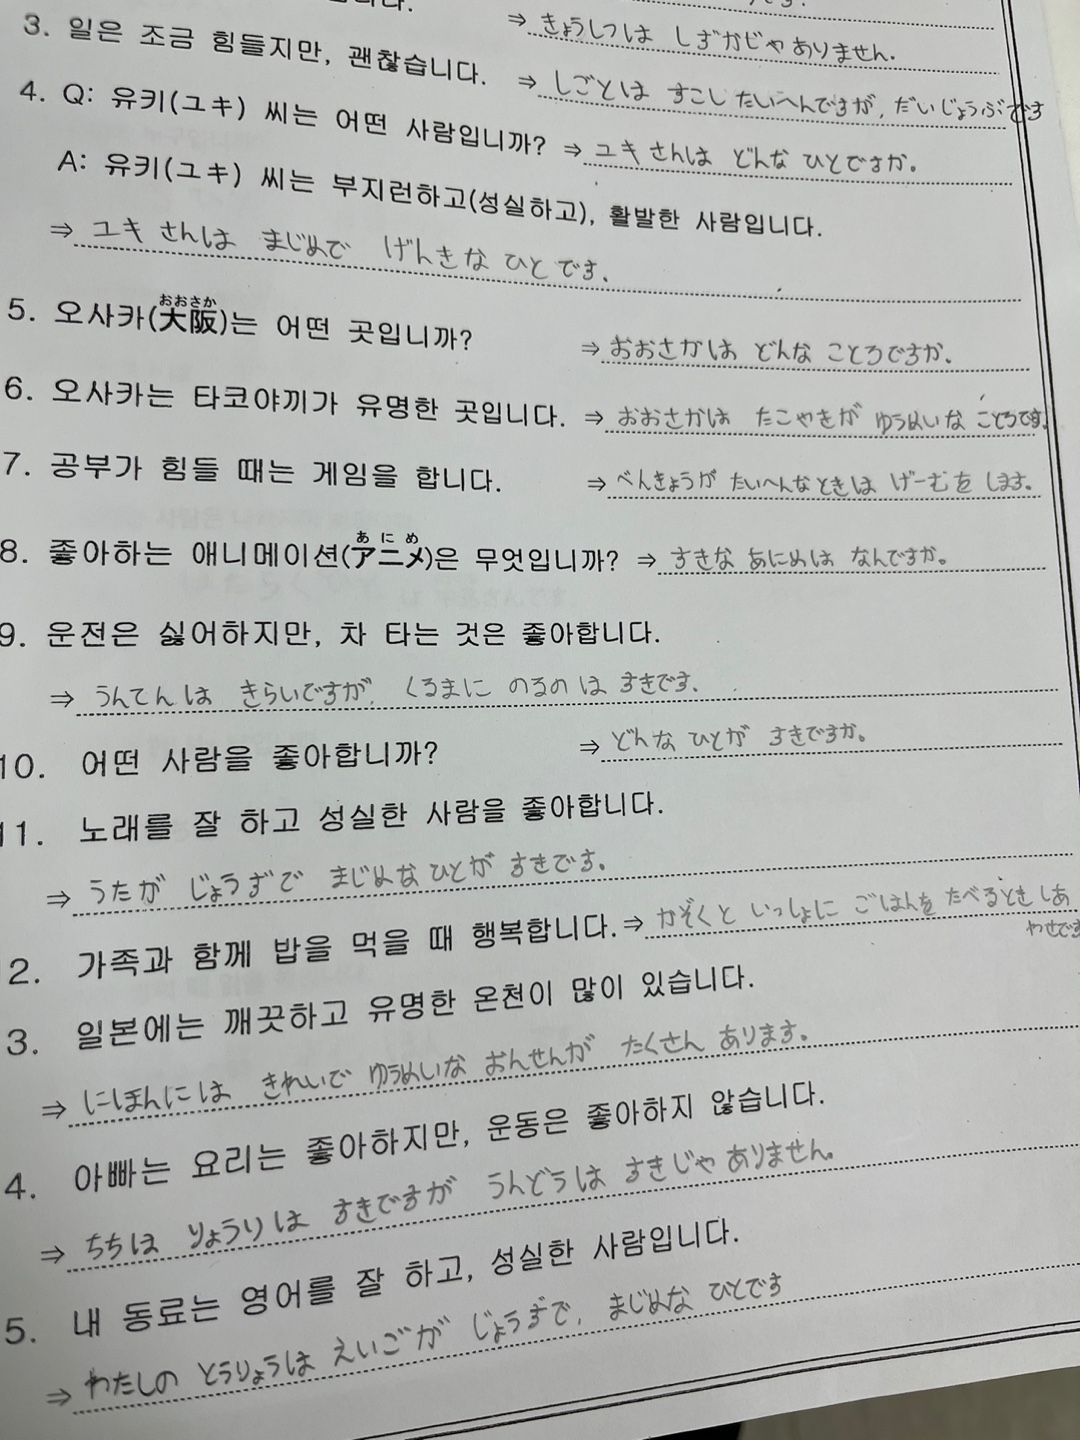 ⇒ きょうしつは しずかじゃありません.
3. 일은 조금 힘들지만, 괜찮습니다. ⇒ しごとは すこし たいへんですが, だいじょうぶです
4. Q: 유키(ユキ) 씨는 어떤 사람입니까? ⇒ ユキさんは どんな ひとですか。
A: 유키(ユキ) 씨는 부지런하고(성실하고), 활발한 사람입니다.
⇒ ユキ さんは まじめで げんきな ひと です.
おおさか
5. 오사카(大阪)는 어떤 곳입니까? ⇒ おおさかは どんな ところですか.
6. 오사카는 타코야끼가 유명한 곳입니다. ⇒ おおさかは たこやきが ゆうめいな ところです.
7. 공부가 힘들 때는 게임을 합니다. ⇒ べんきょうが たいへんなときは げーむを します.
あ に め
8. 좋아하는 애니메이션(アニメ)은 무엇입니까? ⇒ すきな あにめは なんですか。
9. 운전은 싫어하지만, 차 타는 것은 좋아합니다.
⇒ うんてんは きらいですが, くるまに のるのは すきです.
10. 어떤 사람을 좋아합니까? ⇒ どんな ひとが すきですか。
11. 노래를 잘 하고 성실한 사람을 좋아합니다.
⇒ うたが じょうずで まじめな ひとが すきです.
2. 가족과 함께 밥을 먹을 때 행복합니다. ⇒ かぞくと いっしょに ごはんを たべるとき しあ
わせです
3. 일본에는 깨끗하고 유명한 온천이 많이 있습니다.
⇒ にほんには きれいで ゆうめいな おんせんが たくさん あります.
4. 아빠는 요리는 좋아하지만, 운동은 좋아하지 않습니다.
⇒ ちちは りょうりは すきですが うんどうは すきじゃありません。
5. 내 동료는 영어를 잘 하고, 성실한 사람입니다.
⇒ わたしの とうりょうは えいごが じょうずで, まじめな ひとです